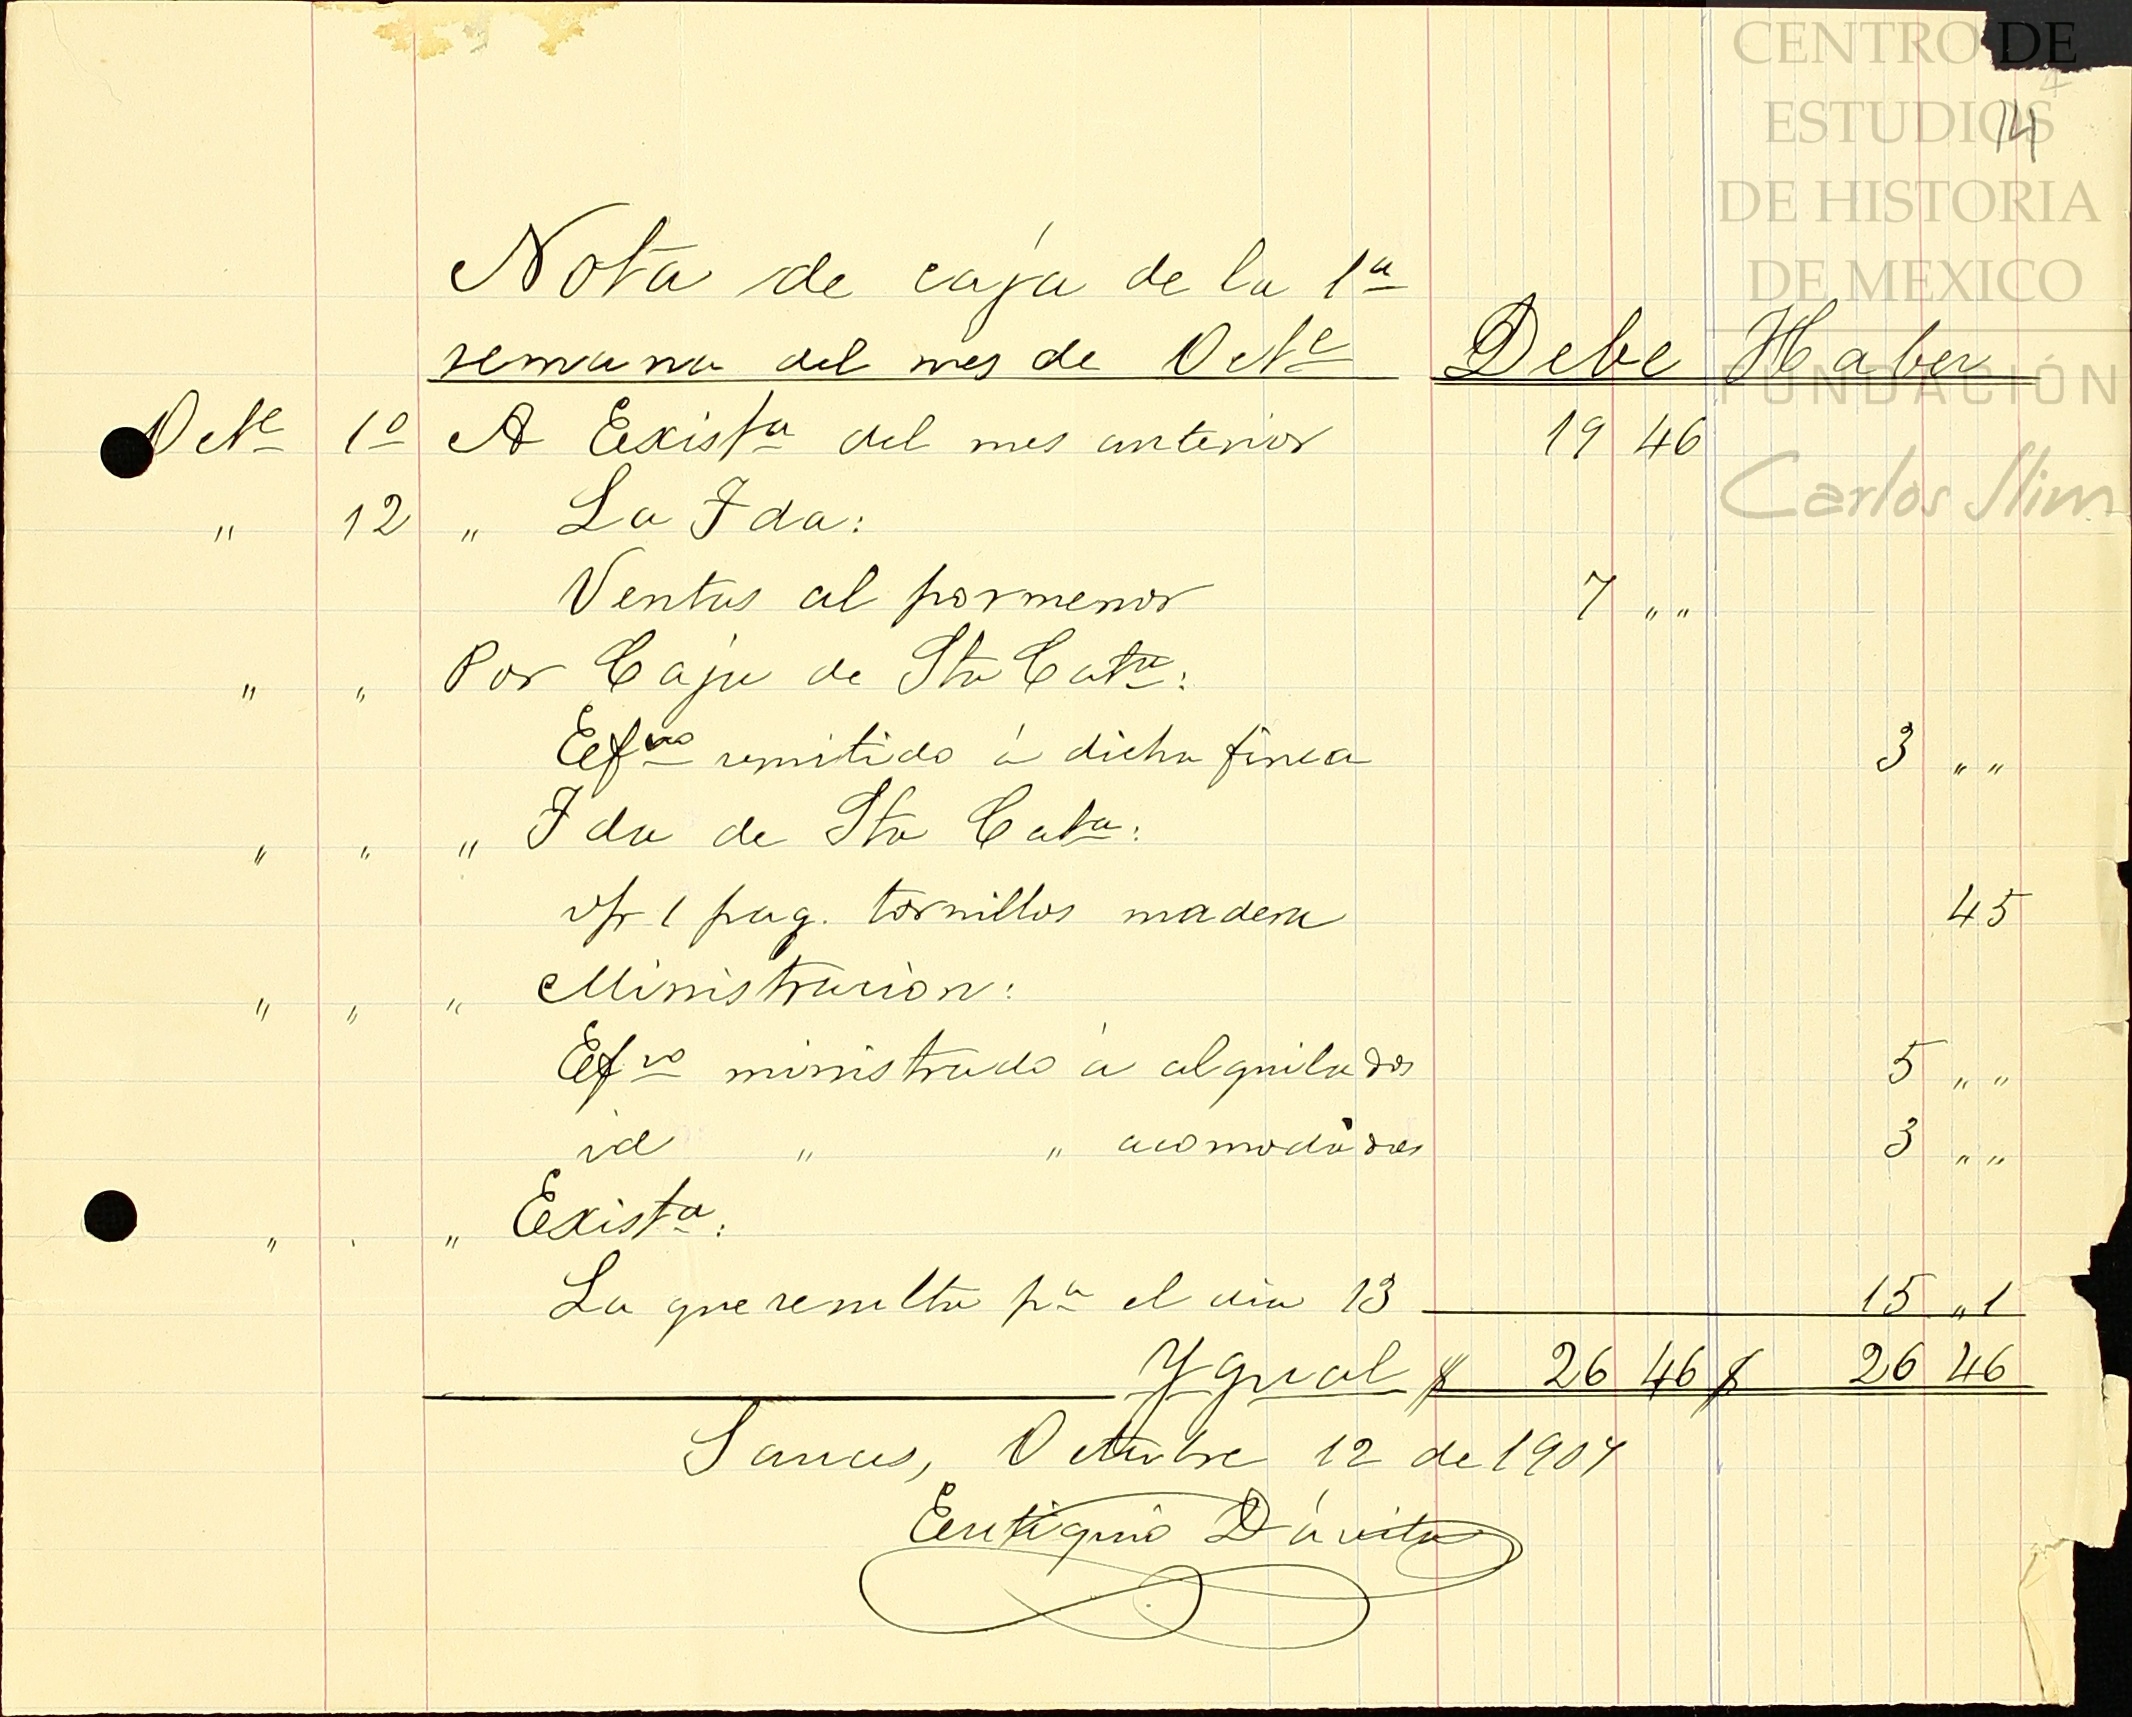 CENTRO DE
ESTUDIOS
DE HISTORIA
DE MEXICO
FUNDACIÓN
Carlos Slim
14
Nota de caja de la 1ª
semana del mes de Octe Debe Haber
Octe 1º A Existª del mes anterior 19 46
" 12 " La Fda:
Ventas al pormenor 7 " "
" " Por Caja de Sta Catª:
Efvo remitido á dicha finca 3 " "
" " " Fda de Sta Catª:
1 paq. tornillos madera 45
" " " Ministracion:
Efvo ministrado á alquilados 5 " "
id " " acomodados 3 " "
" " " Existª:
La que resulta pª el dia 13 15 " 1
Ygual $ 26 46 $ 26 46
Sauces, Octubre 12 de 1907
Eutiquio Dávila